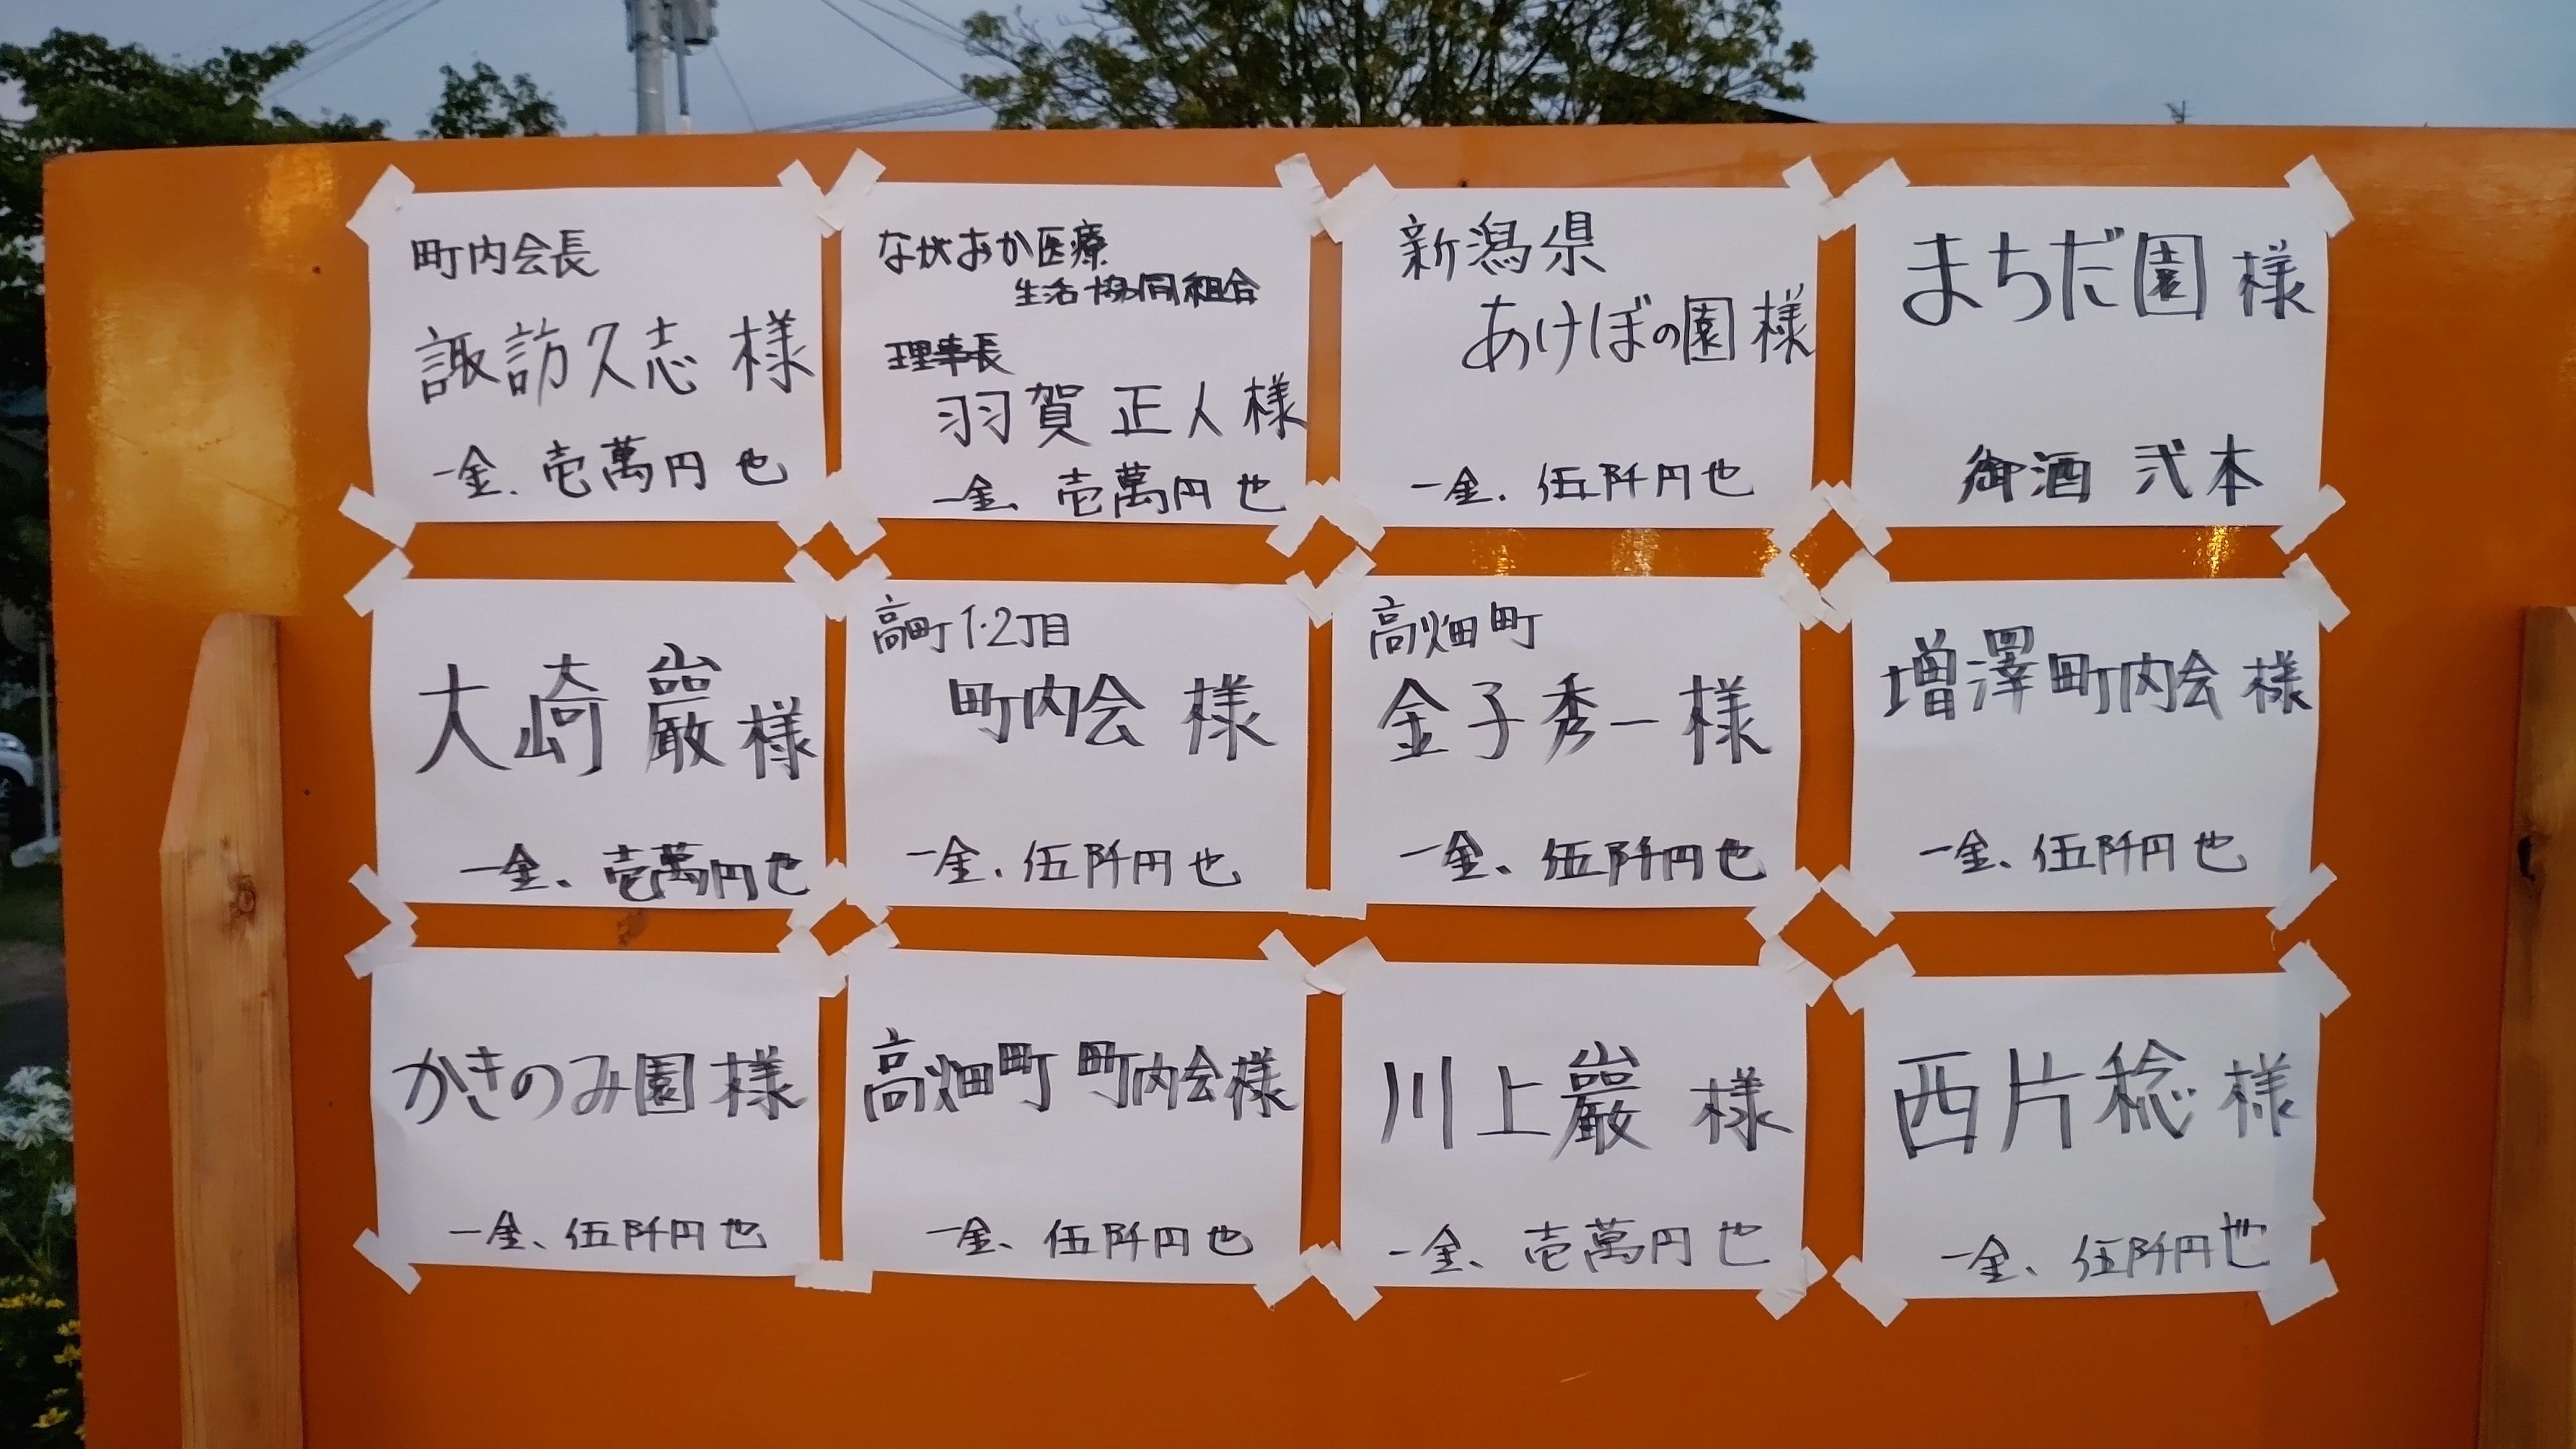 町内会長
諏訪久志 様
一金、壱萬円 也
ながおか医療
生活協同組合
理事長
羽賀 正人 様
一金、壱萬円 也
新潟県
あけぼの園 様
一金、伍阡円也
まちだ園 様
御酒 弐本
大崎 巖 様
一金、壱萬円也
高町1・2丁目
町内会 様
一金、伍阡円 也
高畑町
金子秀一 様
一金、伍阡円也
増澤町内会 様
一金、伍阡円 也
かきのみ園 様
一金、伍阡円 也
高畑町 町内会様
一金、伍阡円 也
川上巖 様
一金、壱萬円 也
西片稔 様
一金、伍阡円也